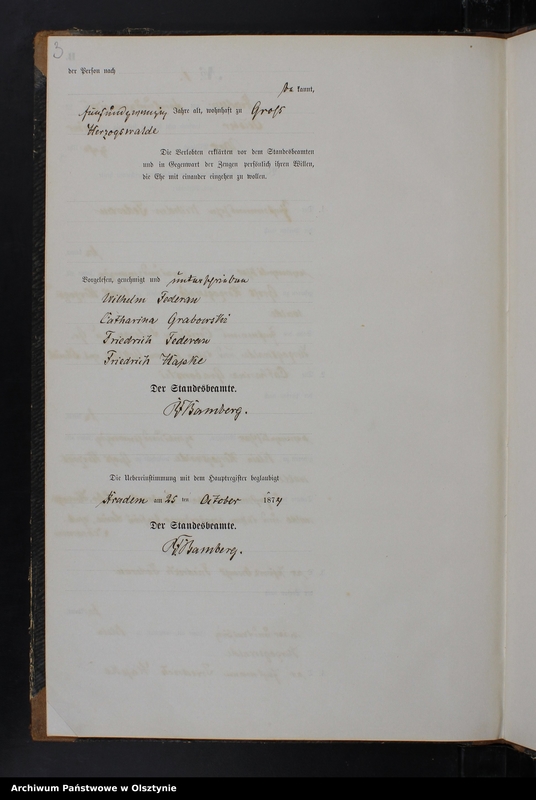 3
der Person nach
be kannt,
fünfundzwanzig Jahre alt, wohnhaft zu Groß
Herzogswalde
Die Verlobten erklärten vor dem Standesbeamten
und in Gegenwart der Zeugen persönlich ihren Willen,
die Ehe mit einander eingehen zu wollen.
Vorgelesen, genehmigt und unterschrieben
Wilhelm Federau
Catharina Grabowski
Friedrich Federau
Friedrich Hapke
Der Standesbeamte.
Bamberg.
Die Uebereinstimmung mit dem Hauptregister beglaubigt
Kradem am 25 ten October 1874
Der Standesbeamte.
Bamberg.
Archiwum Państwowe w Olsztynie